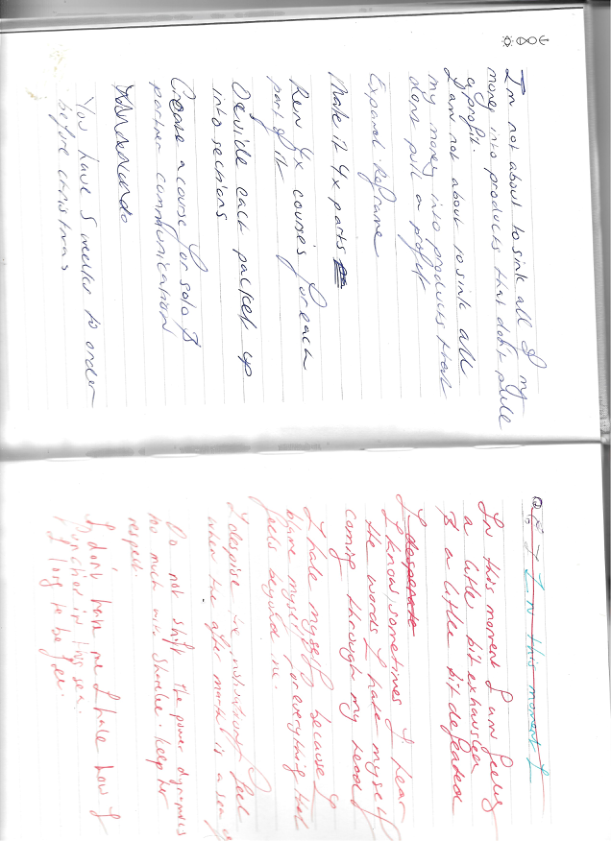 I'm not about to sink all of my
money into products that don't pull
a profit.
I am not about to sink all
my money into products that
dont pull a profit
Expand. Reframe
Make it 4x parts
Run 4x courses for each
part of it
Devide each packet up
into sections
Create a course for solo &
partner communication
You have 5 weeks to order
before christmas
In this moment I
In this moment I am feeling
a little bit exhausted
& a little bit defeated
I desperate
I know, sometimes I hear
the words I hate myself
coming through my head
I hate myself because I
blame myself for everything that
feels beyond me.
I despise the way I feel
when the after mark is a sea of
Do not shift the power dynamics
too much with Sharelie. Keep her
respect.
I don't hate me I hate how I
in this sea.
I long to be free.